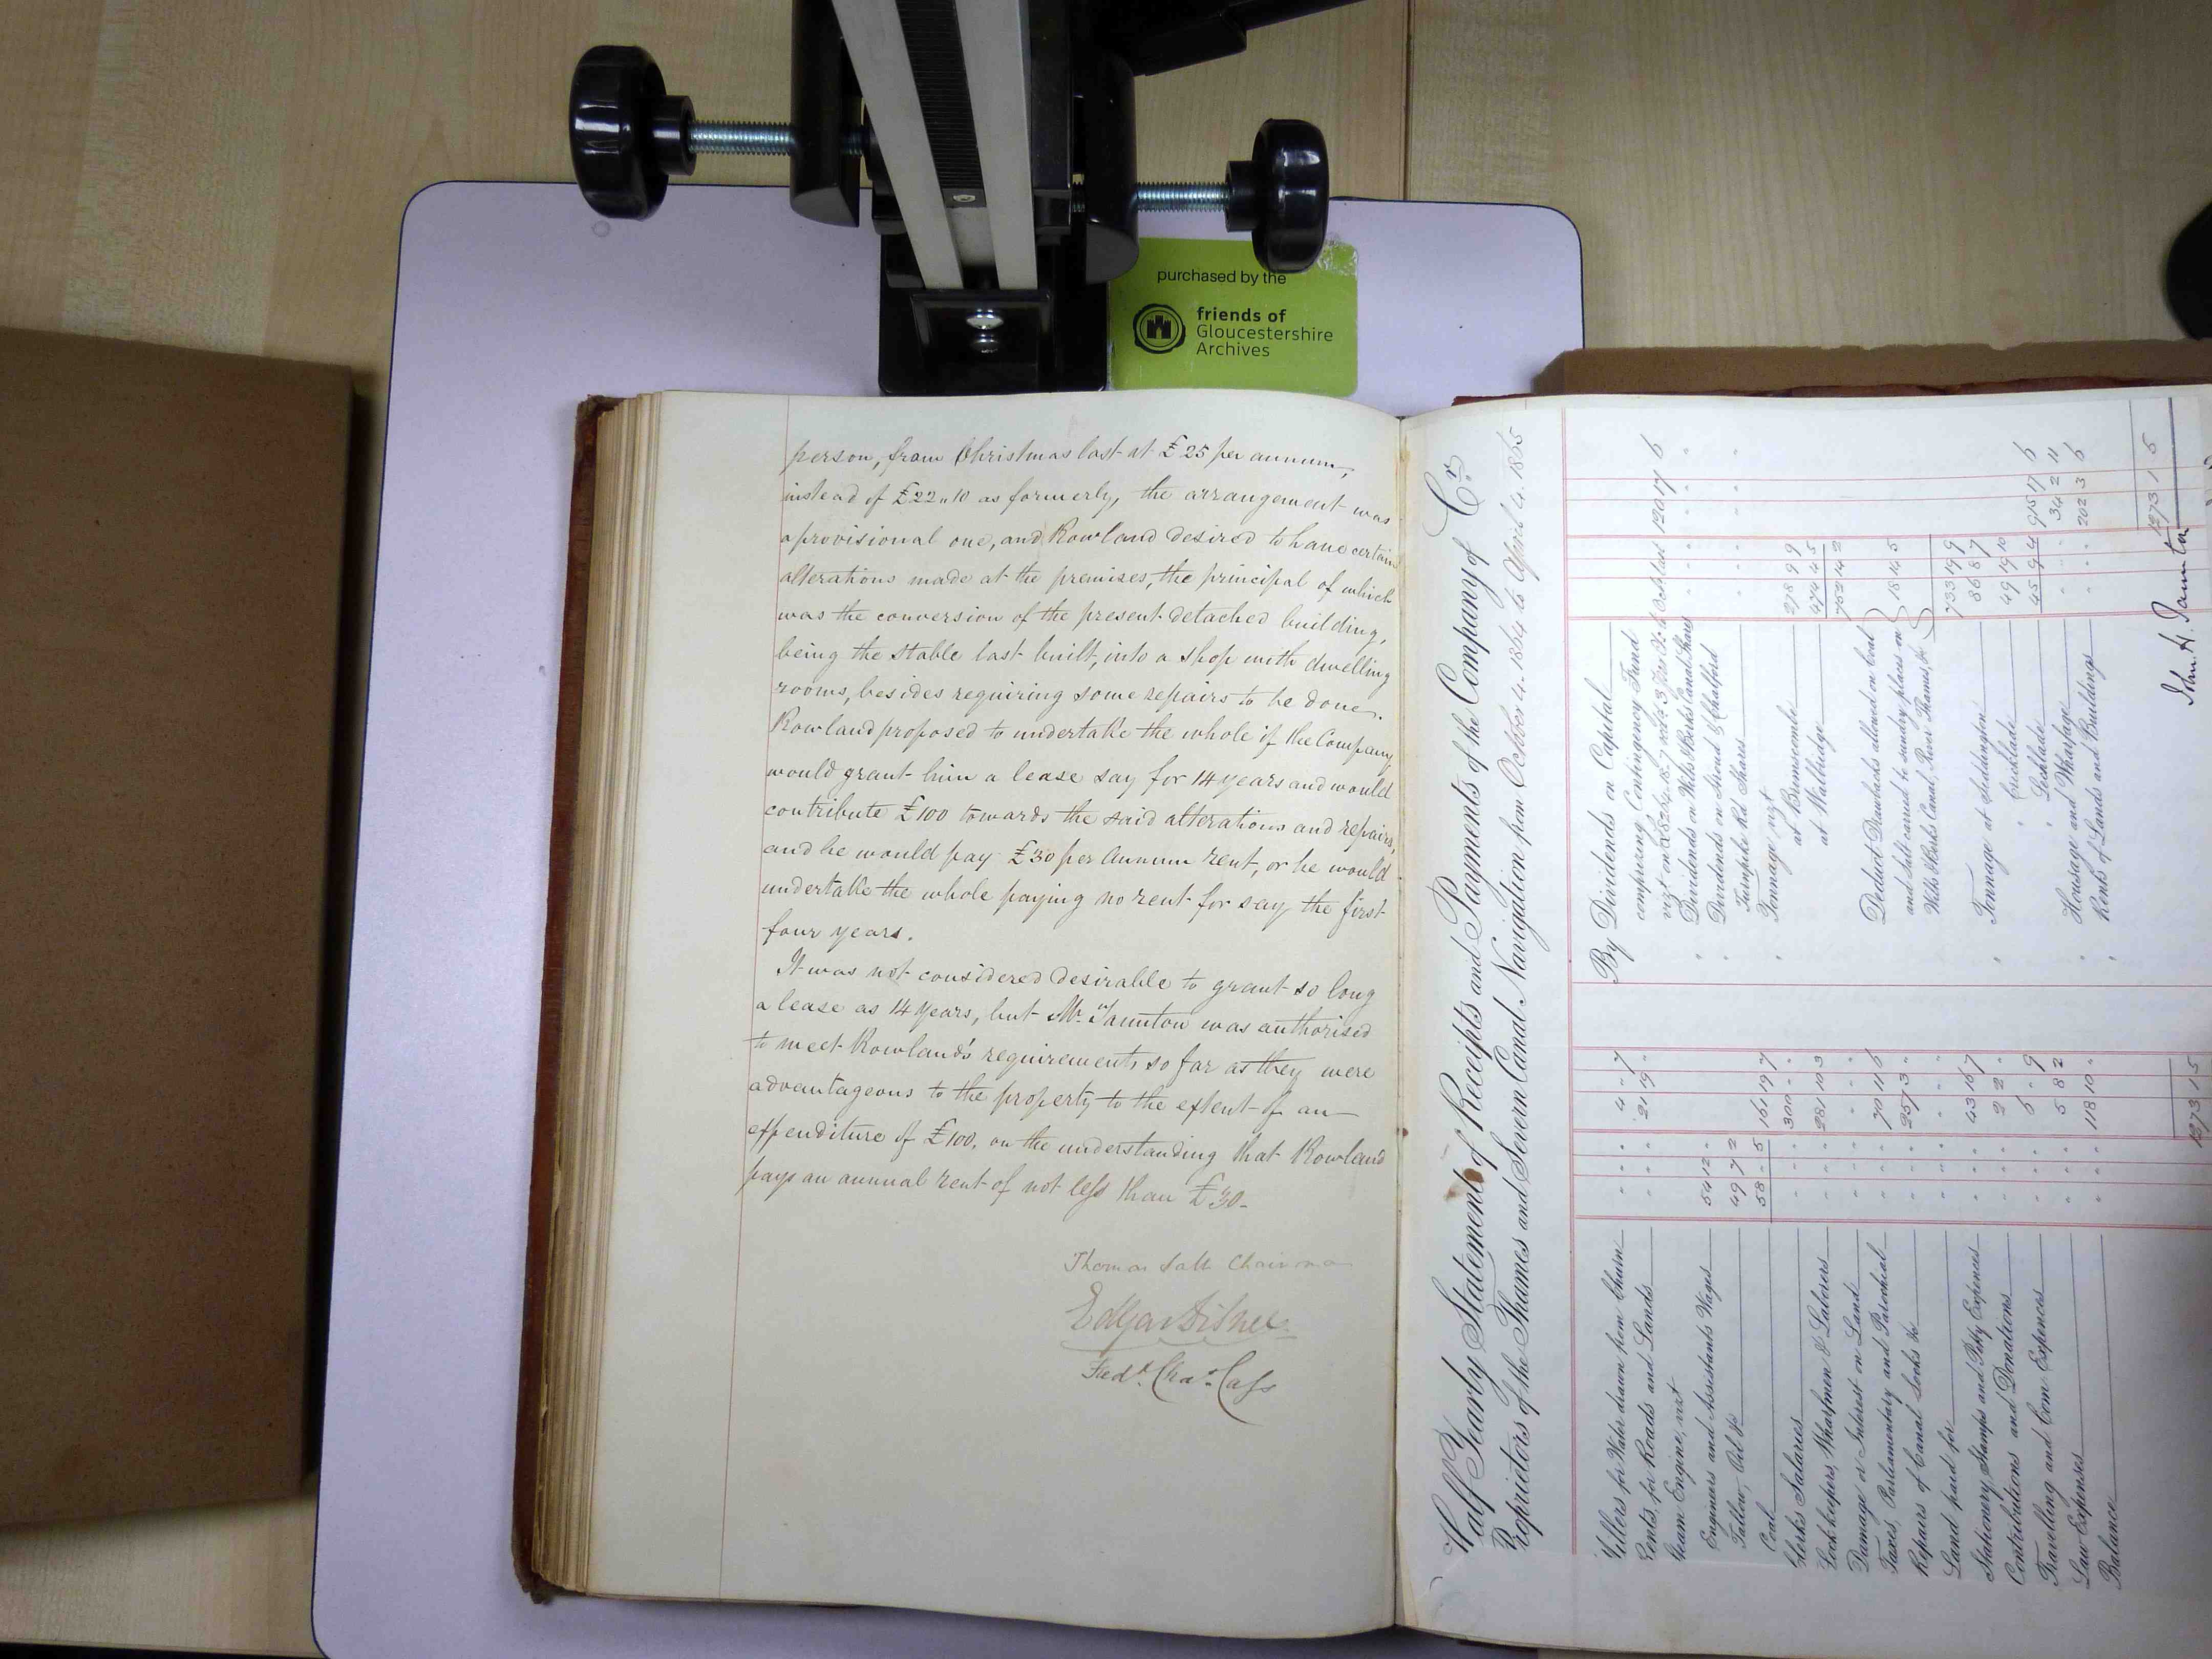 purchased by the
friends of
Gloucestershire
Archives
person, from Christmas last at £25 per annum,
instead of £22..10 as formerly, the arrangement was
a provisional one, and Rowland desired to have certain
alterations made at the premises, the principal of which
was the conversion of the present detached building,
being the stable last built, into a shop with dwelling
rooms, besides requiring some repairs to be done.
Rowland proposed to undertake the whole if the Company
would grant him a lease say for 14 years and would
contribute £100 towards the said alterations and repairs,
and he would pay £30 per annum rent, or he would
undertake the whole paying no rent for say the first
four years.
It was not considered desirable to grant so long
a lease as 14 years, but Mr. Taunton was authorised
to meet Rowland's requirements so far as they were
advantageous to the property to the extent of an
expenditure of £100, on the understanding that Rowland
pays an annual rent of not less than £30-
Thomas Salt Chairman
Fredk. Chas. Cass
Half Yearly Statement of Receipts and Payments of the Company of Cr.
Proprietors of the Thames and Severn Canal Navigation from October 4. 1864 to April 4. 1865
Millers for Water drawn from Churn 4 " 7
Rents, for Roads and Lands 21 19 "
Steam Engine, vizt
Engineers and Assistants Wages 54 12 "
Tallow, Oil &c 49 7 2
Coal 58 " 5 161 19 7
Clerks Salaries 300 " "
Lock keepers, Wharfmen & Laborers 281 10 3
Damage or Interest on Land " " "
Taxes, Parliamentary and Parochial 70 11 6
Repairs of Canal Locks &c 257 3 "
Land paid for " " "
Stationery, Stamps and Petty Expences 43 16 7
Contributions and Donations 2 2 "
Travelling and Com Expences 6 " 9
Law Expenses 5 8 2
Balance 118 10 "
1273 1 5
By Dividends on Capital
comprizing Contingency Fund
Dividends on Wilts & Berks Canal Shares
Dividends on Stroud & Chalford
Turnpike Rd Shares
Tonnage vizt
at Brimscombe 278 9 9
at Wallbridge 474 4 5
752 14 2
Deduct Drawbacks allowed on Coal
and Salt carried to sundry places on 18 14 5
Wilts & Berks Canal, River Thames, &c
733 19 9
Tonnage at Siddington 86 8 7
" Cricklade 49 19 10
" Lechlade 45 9 4 915 17 6
" Housage and Wharfage 34 2 11
" Rents of Lands and Buildings 202 3 6
1273 1 5
John H. Taunton